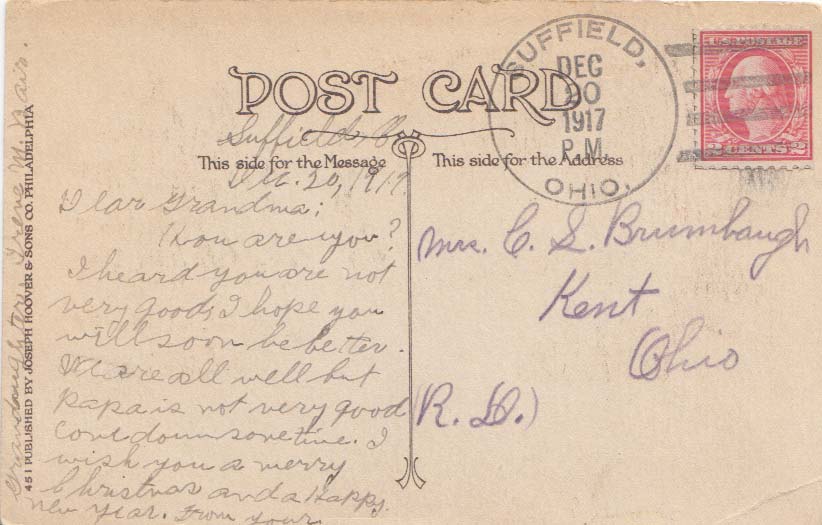 POST CARD
This side for the Message
This side for the Address
SUFFIELD,
DEC
20
1917
P.M.
OHIO.
U.S. POSTAGE
2 CENTS 2
Suffield, O.
Dec. 20, 1917
Dear Grandma;
How are you?
I heard you are not
very good, I hope you
will soon be better.
We are all well but
papa is not very good
Come down sometime. I
wish you a merry
Christmas and a Happy
new year. From your
Granddaughter, Irene M.
Mrs. C. S. Brumbaugh
Kent
Ohio
(R. D.)
451 PUBLISHED BY JOSEPH HOOVER & SONS CO. PHILADELPHIA